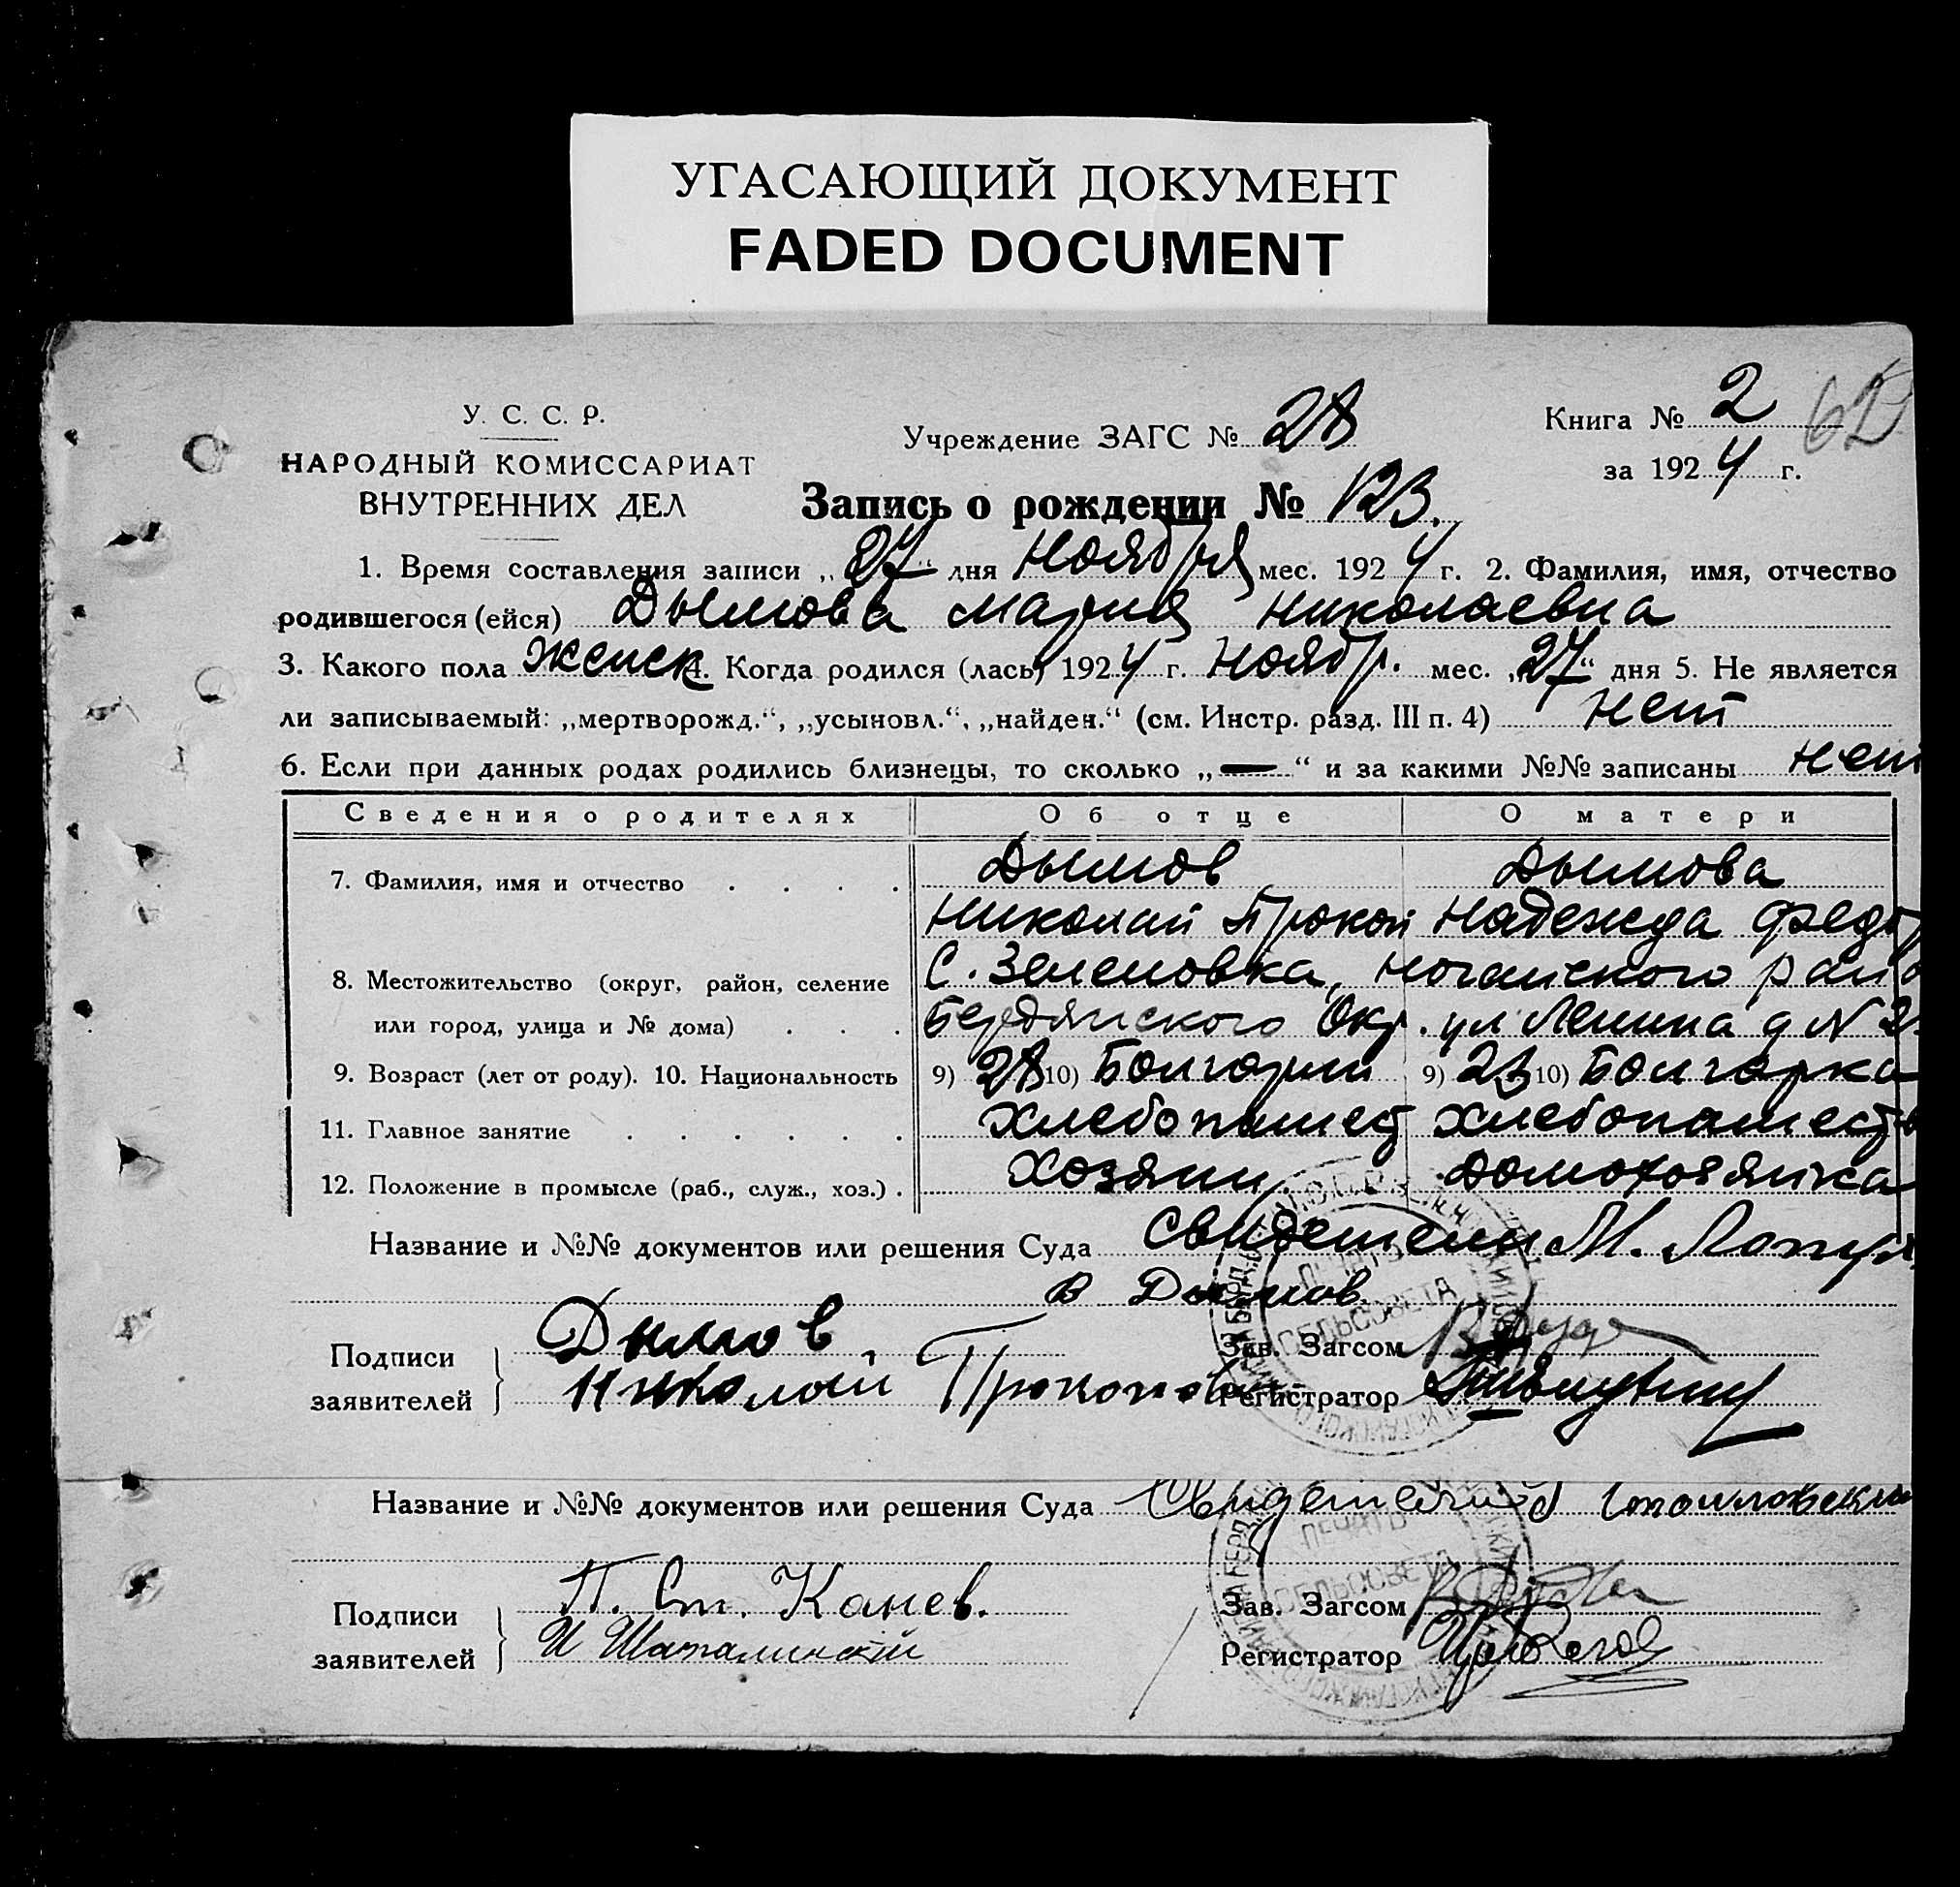 УГАСАЮЩИЙ ДОКУМЕНТ
FADED DOCUMENT
У. С. С. Р.
НАРОДНЫЙ КОМИССАРИАТ
ВНУТРЕННИХ ДЕЛ
Учреждение ЗАГС № 28
Книга № 2
62
за 1924 г.
Запись о рождении № 123.
1. Время составления записи „27“ дня Ноября мес. 1924 г. 2. Фамилия, имя, отчество
родившегося (ейся) Дымова Мария Николаевна
3. Какого пола женск 4. Когда родился (лась) 1924 г. Ноябр. мес. „27“ дня 5. Не является
ли записываемый: „мертворожд.“, „усыновл.“, „найден.“ (см. Инстр. разд. III п. 4) нет
6. Если при данных родах родились близнецы, то сколько „—“ и за какими №№ записаны нет
Сведения о родителях Об отце О матери
7. Фамилия, имя и отчество Дымов Дымова
Николай Прокоп Надежда Федор
8. Местожительство (округ, район, селение С. Зеленовка, Ногайского рай
или город, улица и № дома) Бердянского Окр. ул Ленина д N
9. Возраст (лет от роду). 10. Национальность 9) 28 10) Болгарин 9) 23 10) Болгарка
11. Главное занятие Хлебопашест Хлебопашеств
12. Положение в промысле (раб., служ., хоз.) Хозяин Домохозяйка
Название и №№ документов или решения Суда Свидетели М.
В Дымов
Подписи заявителей Дымов
Николай Прокопов
Зав. Загсом
Регистратор
ПЕЧАТЬ
СЕЛЬСОВЕТА
Название и №№ документов или решения Суда Свидетели
Подписи заявителей П. Ст. Канев.
И Шаталинский
Зав. Загсом
Регистратор
ПЕЧАТЬ
СЕЛЬСОВЕТА